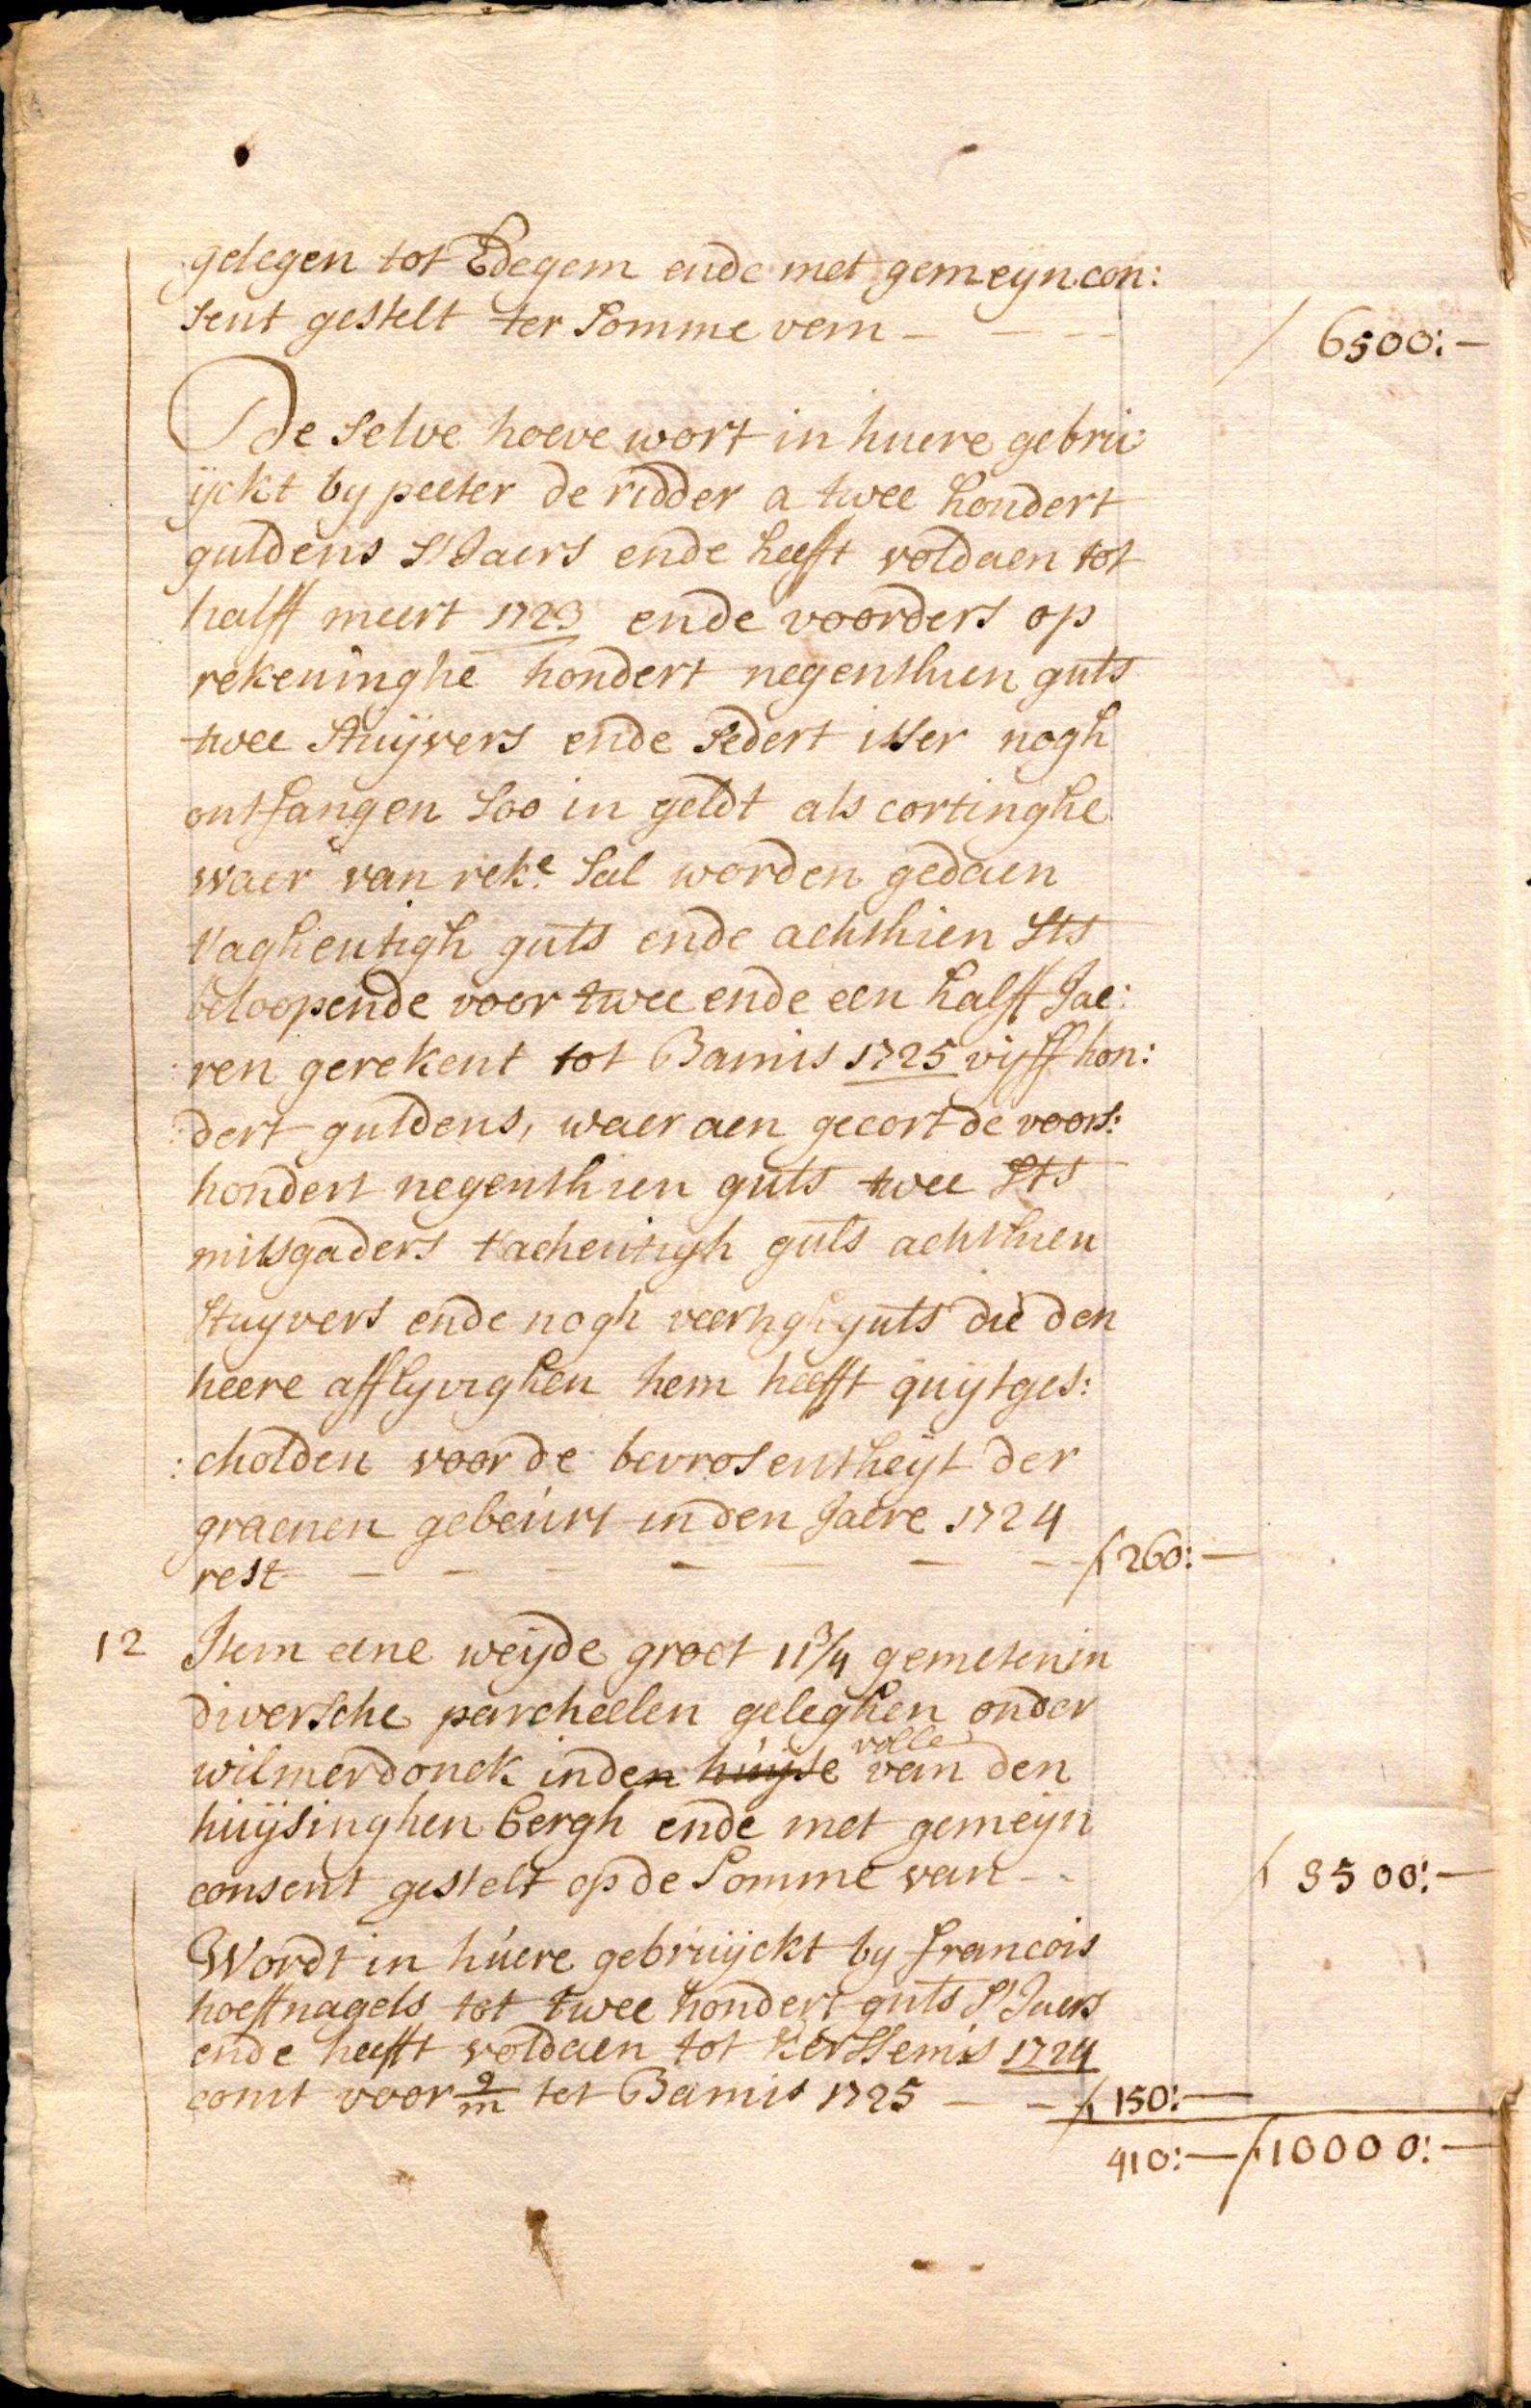 gelegen tot Edegem ende met gemeyn con:
sent gestelt ter somme van - / 6500:-
De selve hoeve wort in huere gebru:
ijckt by peeter de ridder a twee hondert
guldens s'Jaers ende heeft voldaen tot
halff meert 1723 ende voorders op
rekeninghe hondert negenthien guls
twee stuijvers ende sedert isser nogh
ontfangen soo in geldt als cortinghe
waer van reke. sal worden gedaen
taghentigh guls ende achthien sts
beloopende voor twee ende een halff Jae:
ren gerekent tot Bamis 1725 vijff hon:
:dert guldens, waer aen gecort de voors:
hondert negenthien guls twee sts
mitsgaders tachentigh guls achthien
stuyvers ende nogh veertigh guls die den
heere afflyvighen hem heefft quijtges:
:cholden voor de bevrosentheyt der
graenen gebeurt in den Jaere 1724
rest - - - - - - ƒ 260:-
12 Item eene weijde groot 11 3/4 gemeten in
diversche percheelen geleghen onder
volle
wilmerdonck inden huijse van den
huijsinghen bergh ende met gemeijn
consent gestelt op de somme van - - ƒ 3500:-
Wordt in huere gebruijckt by francois
hoeffnagels tot twee hondert guls s'Jaers
ende heefft voldaen tot Kerssemis 1724
comt voor 9/m tot Bamis 1725 - - ƒ 150:-
410:- ƒ 10000:-